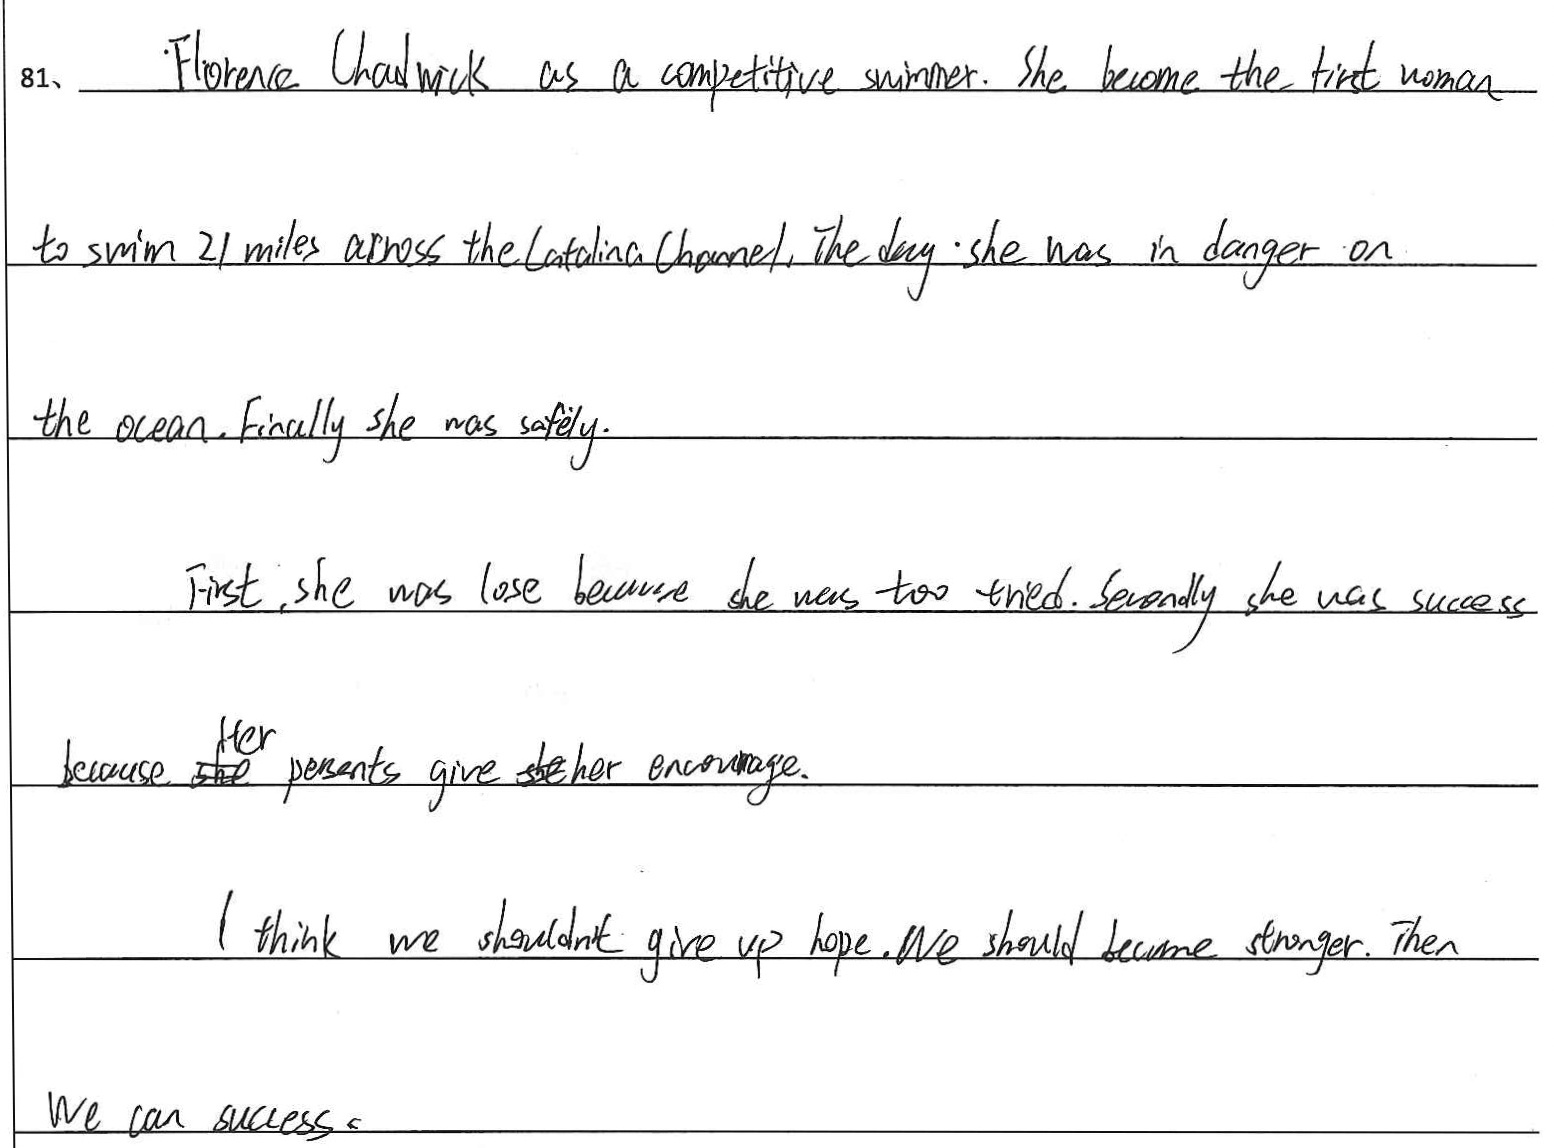 81、 Florence Chadwick as a competitive swimmer. She become the first woman
to swim 21 miles across the Catalina Channel. The day she was in danger on
the ocean. Finally she was safely.
First, she was lose because she was too tried. Secondly she was success
because Her persents give her encourage.
I think we shouldn't give up hope. We should become stronger. Then
We can success.